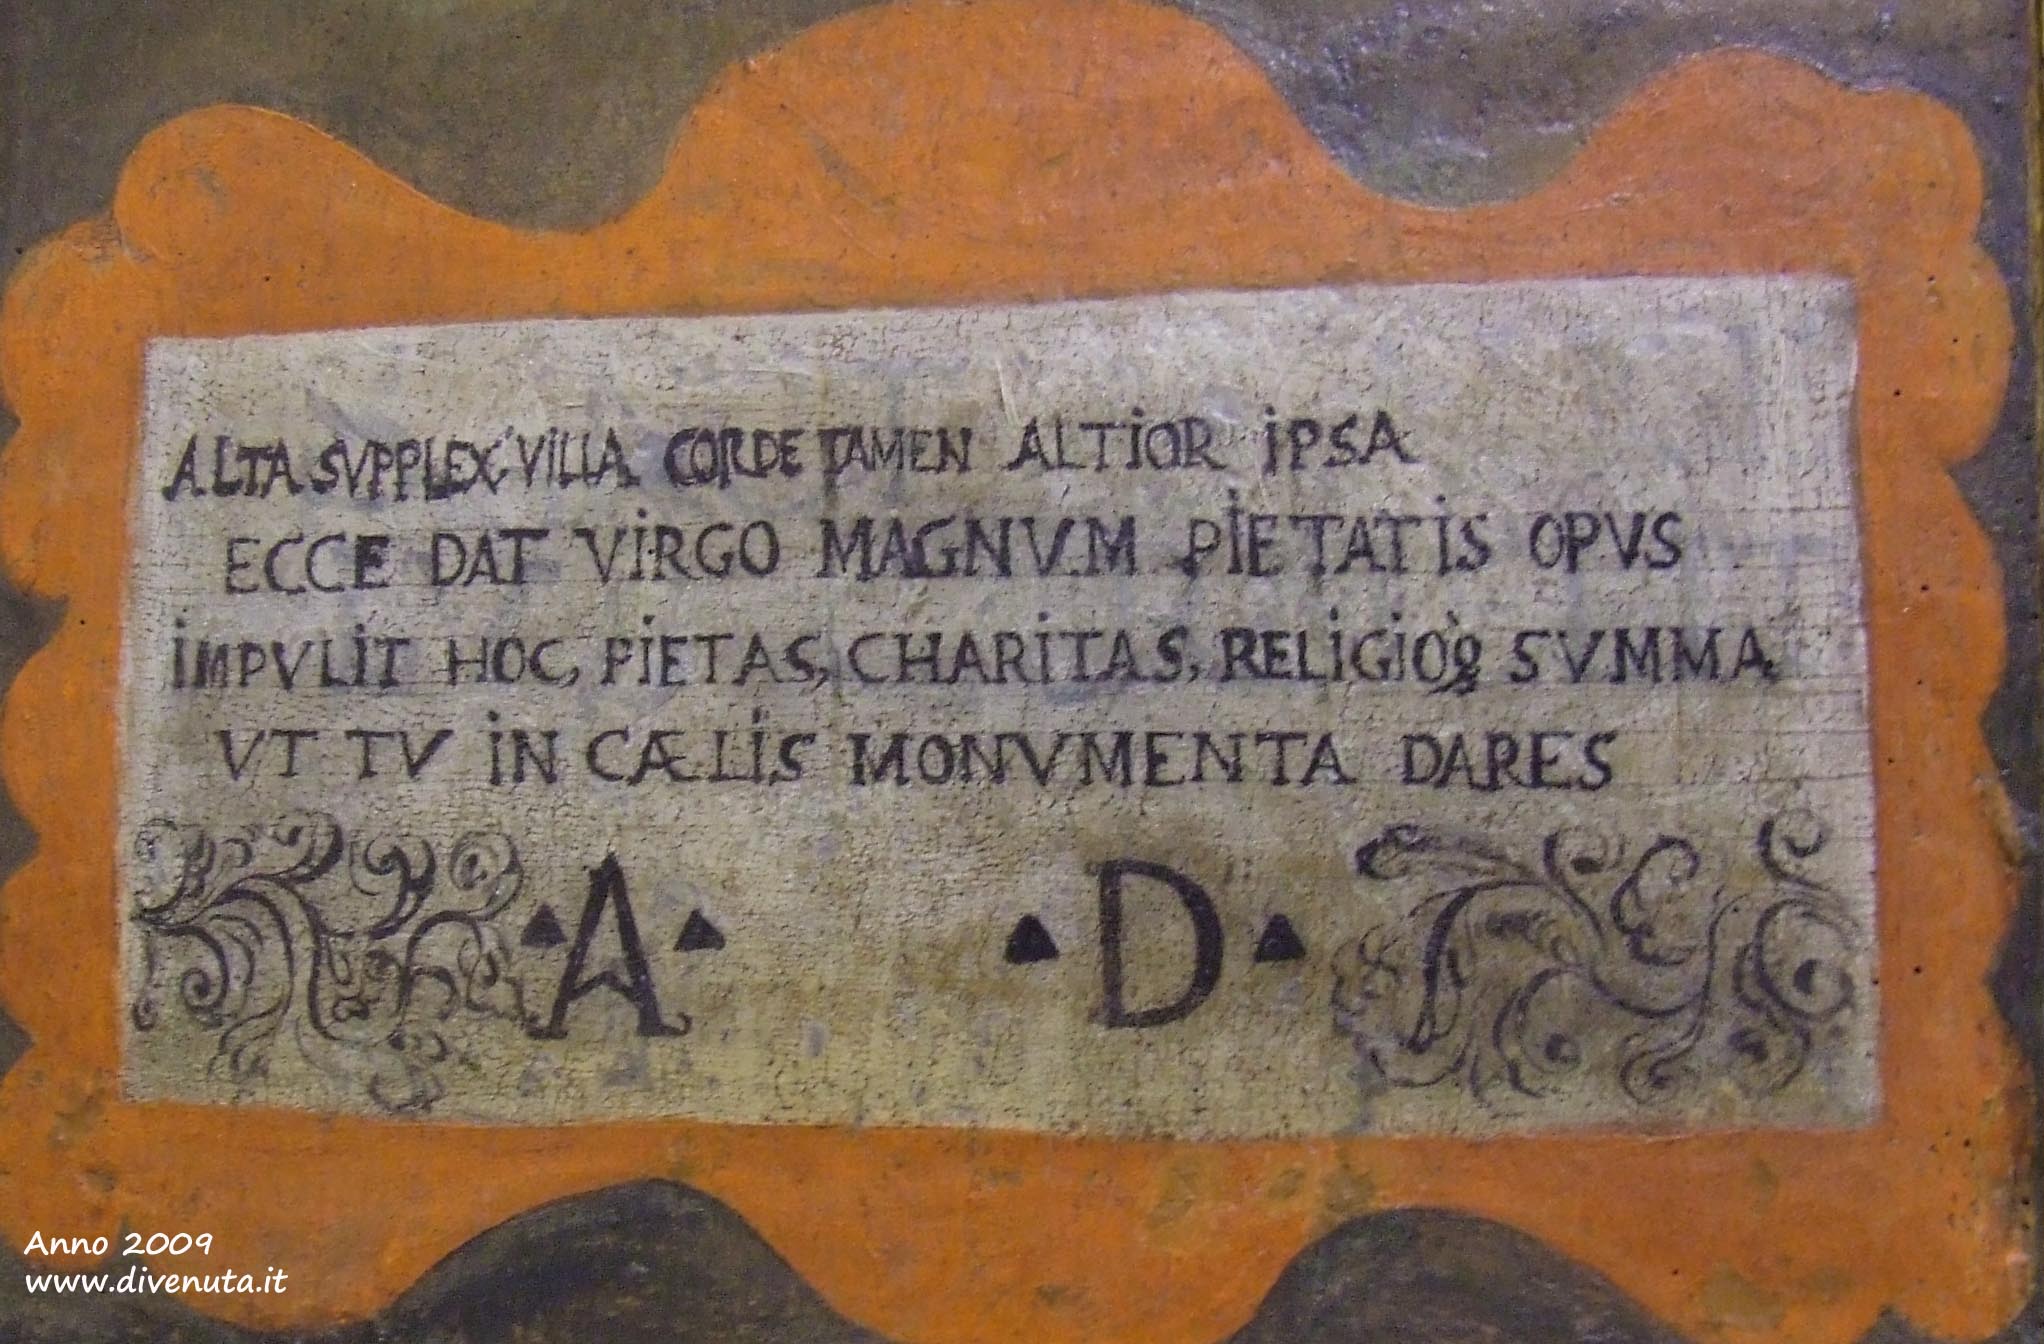 ALTA SVPPLEX VILLA CORDE TAMEN ALTIOR IPSA
ECCE DAT VIRGO MAGNVM PIETATIS OPVS
IMPVLIT HOC, PIETAS, CHARITAS, RELIGIOQ; SVMMA
VT TV IN CÆLIS MONVMENTA DARES
▲A▲ ▲D▲
Anno 2009
www.divenuta.it